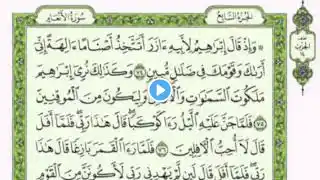 سُورَةُ الأَنْعَامِ الجُزْءُ السَّابِعُ
وَإِذْ قَالَ إِبْرَٰهِيمُ لِأَبِيهِ ءَازَرَ أَتَتَّخِذُ أَصْنَامًا ءَالِهَةً إِنِّىٓ
أَرَىٰكَ وَقَوْمَكَ فِى ضَلَٰلٍ مُّبِينٍ ٧٤ وَكَذَٰلِكَ نُرِىٓ إِبْرَٰهِيمَ
مَلَكُوتَ ٱلسَّمَٰوَٰتِ وَٱلْأَرْضِ وَلِيَكُونَ مِنَ ٱلْمُوقِنِينَ
٧٥ فَلَمَّا جَنَّ عَلَيْهِ ٱلَّيْلُ رَءَا كَوْكَبًا قَالَ هَٰذَا رَبِّى فَلَمَّآ أَفَلَ
قَالَ لَآ أُحِبُّ ٱلْءَافِلِينَ ٧٦ فَلَمَّا رَءَا ٱلْقَمَرَ بَازِغًا قَالَ هَٰذَا
رَبِّى فَلَمَّآ أَفَلَ قَالَ لَئِن لَّمْ يَهْدِنِى رَبِّى لَأَكُونَنَّ مِنَ ٱلْقَوْمِ